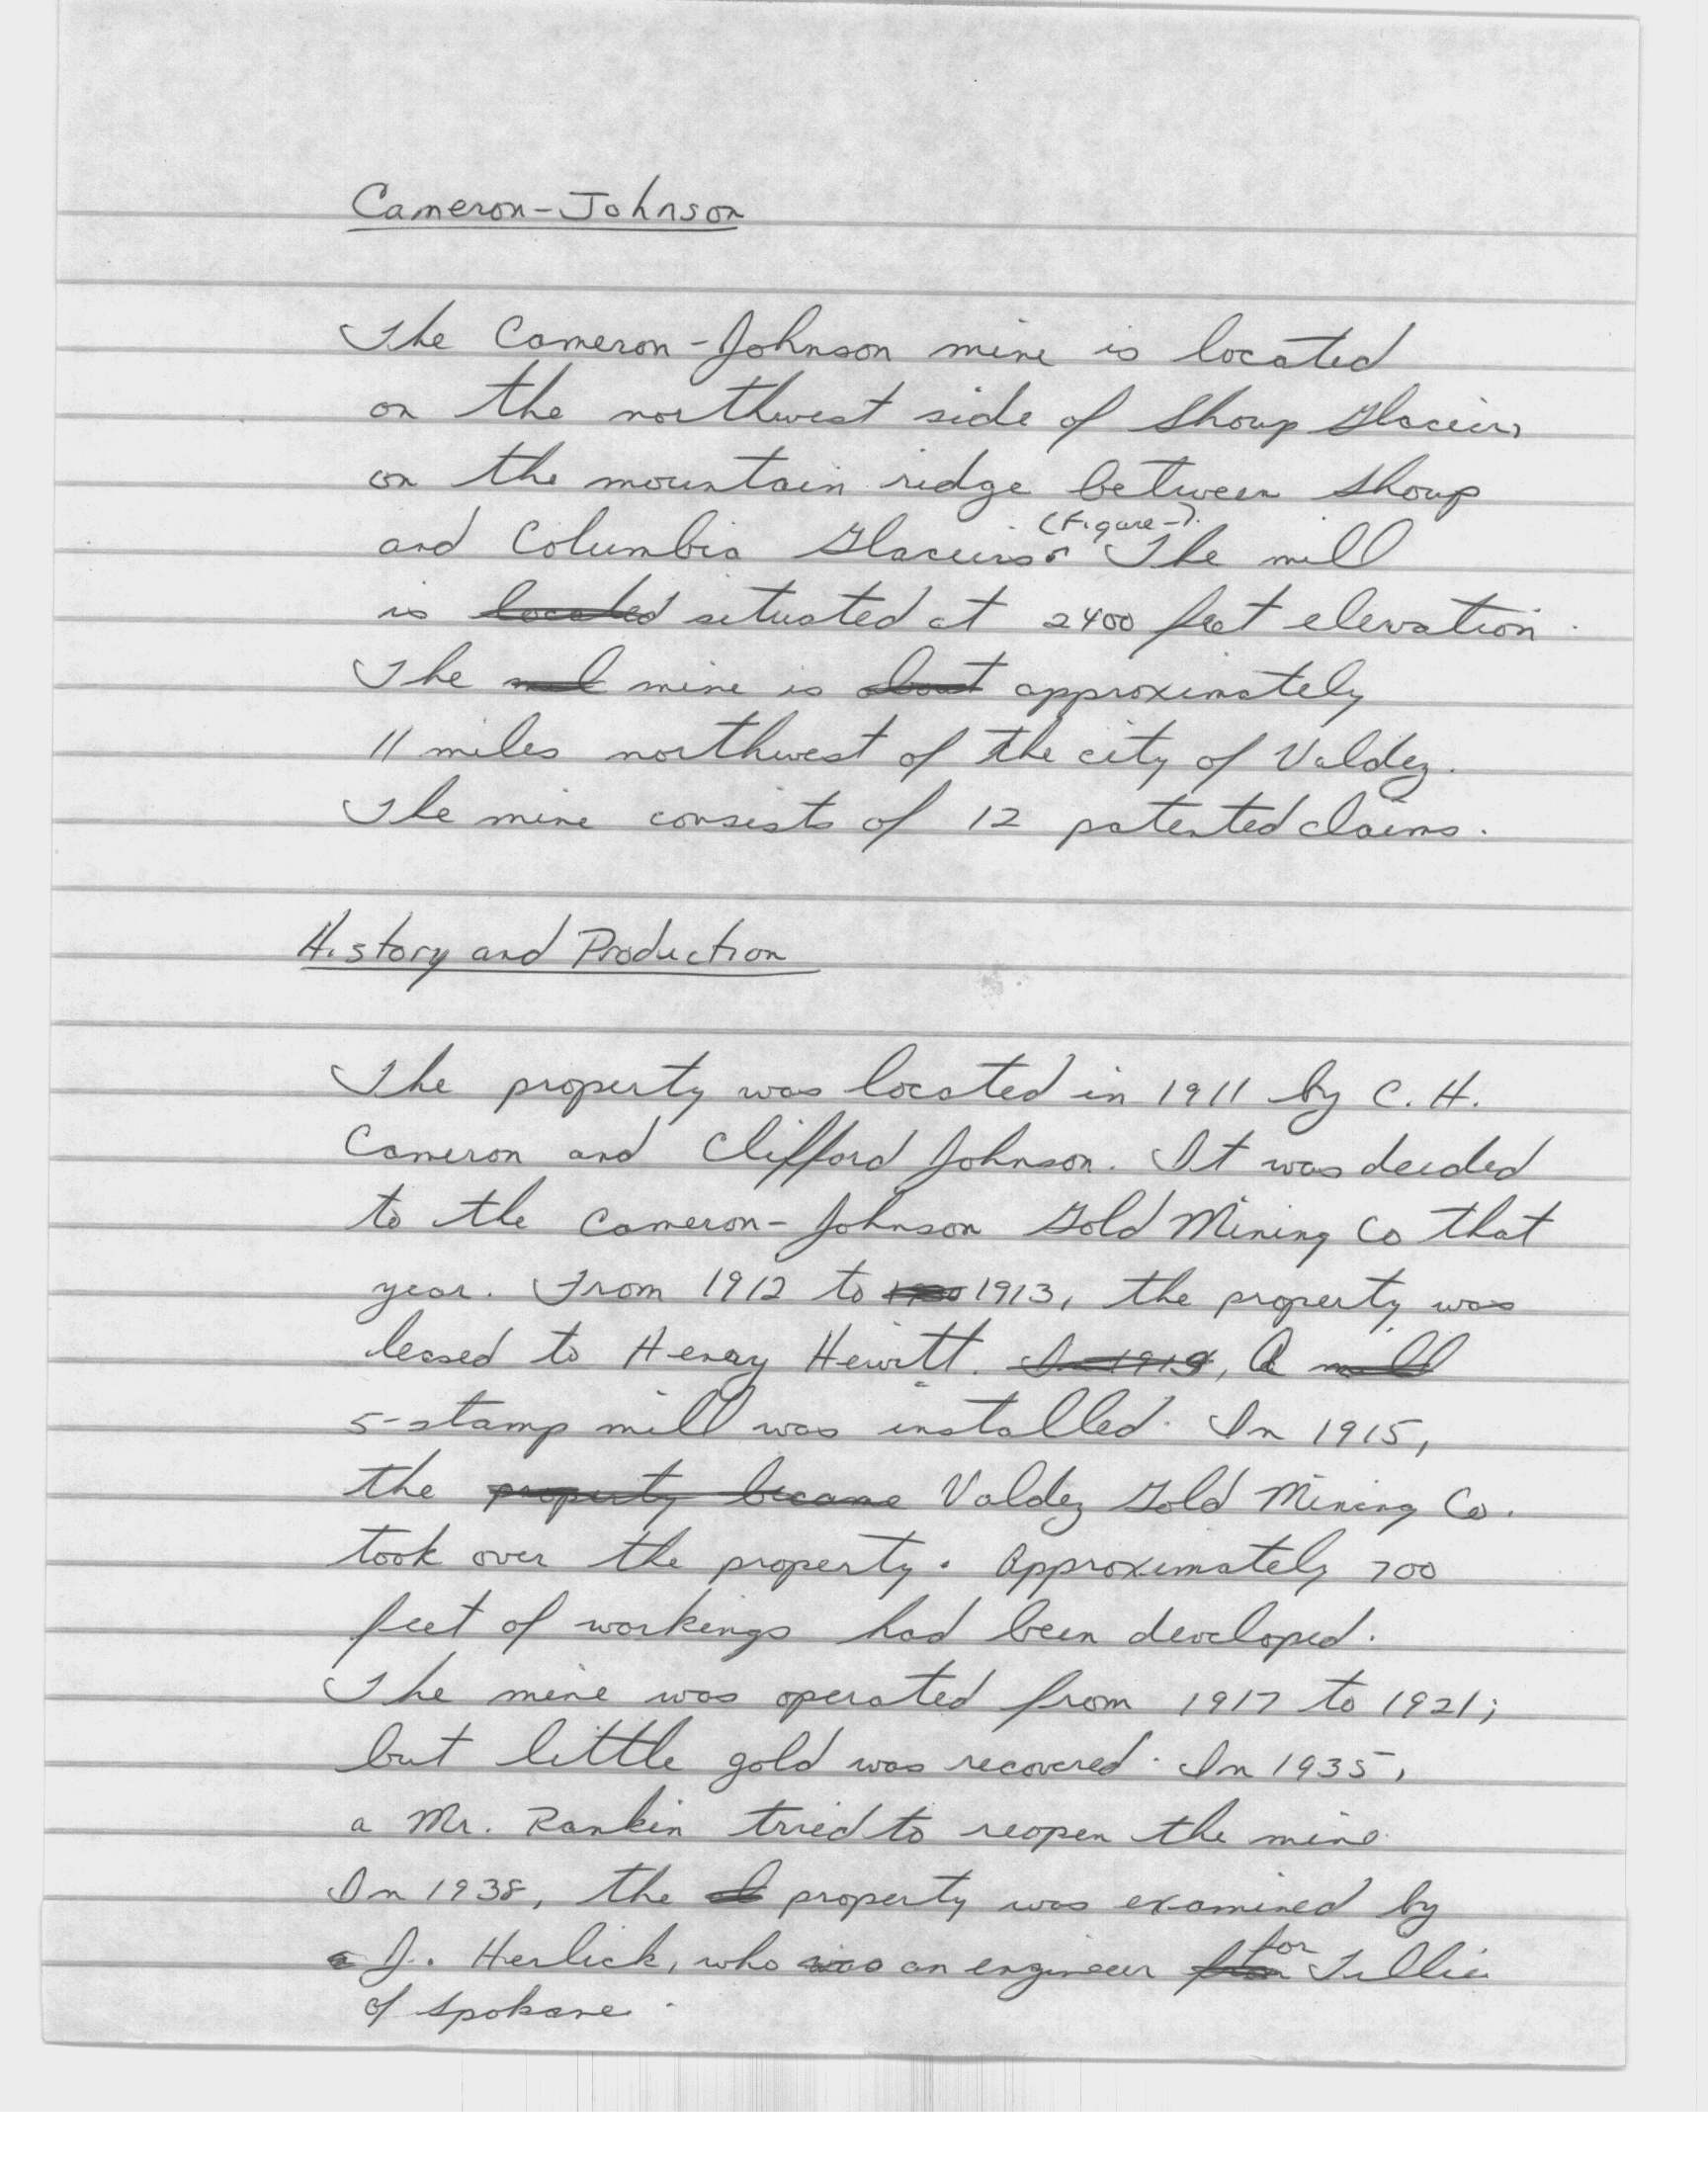 Cameron-Johnson
The Cameron-Johnson mine is located
on the northwest side of Shoup Glacier,
on the mountain ridge between Shoup
(Figure-).
and Columbia Glaciers. The mill
is located situated at 2400 feet elevation.
The mill mine is about approximately
11 miles northwest of the city of Valdez.
The mine consists of 12 patented claims.
History and Production
The property was located in 1911 by C. H.
Cameron and Clifford Johnson. It was deeded
to the Cameron-Johnson Gold Mining Co that
year. From 1912 to 1913, the property was
leased to Henry Hewitt. In 1919, A mill
5-stamp mill was installed. In 1915,
the property became Valdez Gold Mining Co.
took over the property. Approximately 700
feet of workings had been developed.
The mine was operated from 1917 to 1921;
but little gold was recovered. In 1935,
a Mr. Rankin tried to reopen the mine.
In 1938, the property was examined by
J. Herlick, who was an engineer for
of Spokane.